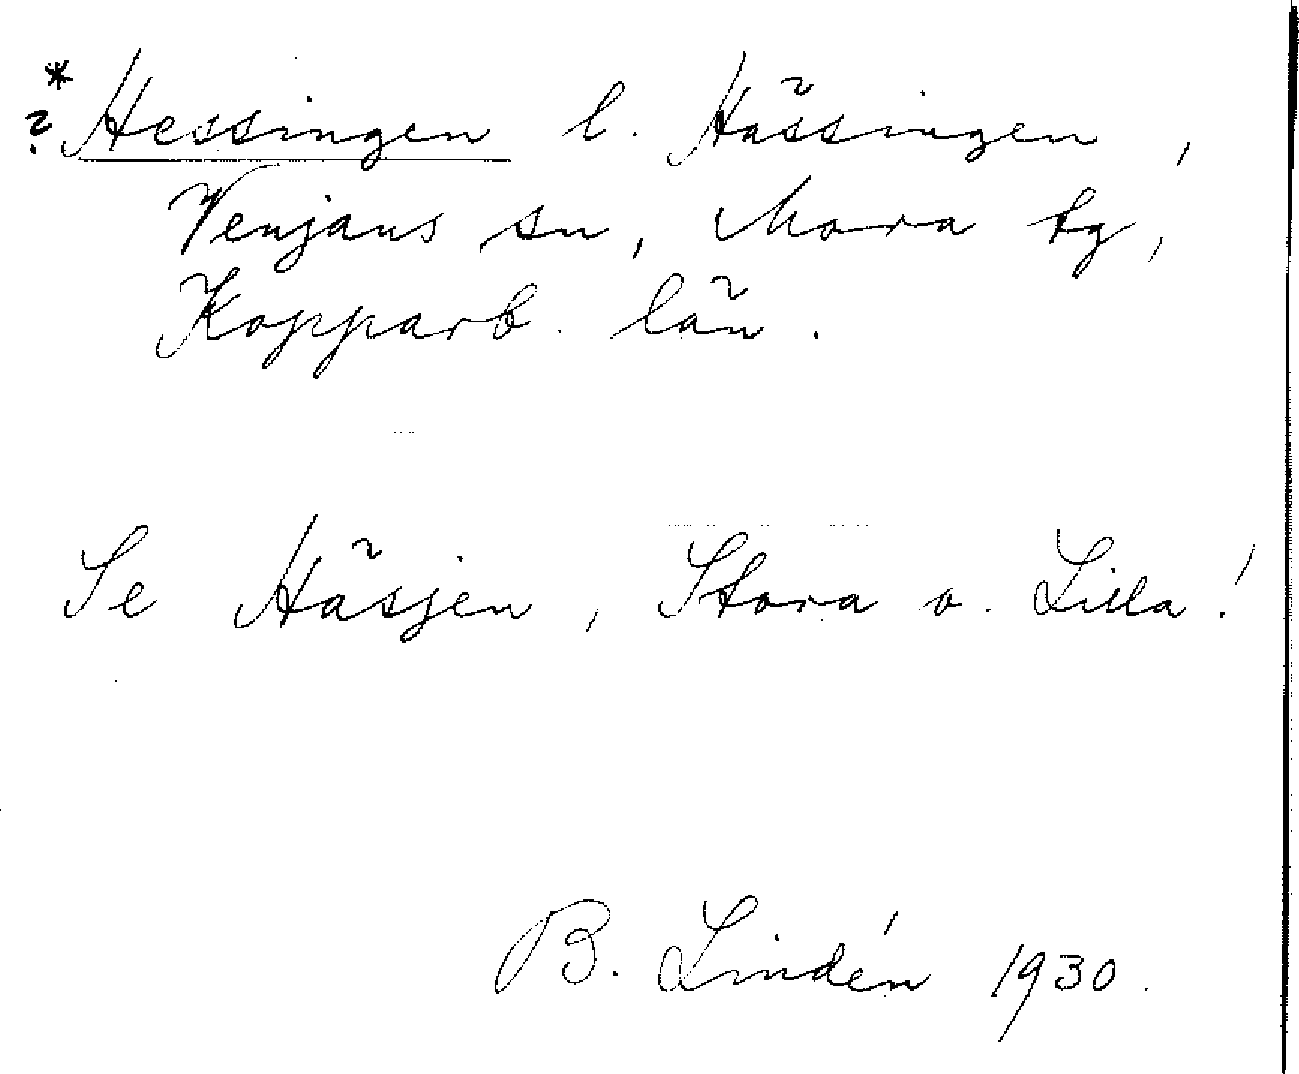 *
? Hessingen l. Hässingen,
Venjans sn, Mora tg,
Kopparb. län.
Se Häsjen, Stora o. Lilla!
B. Lindén 1930.